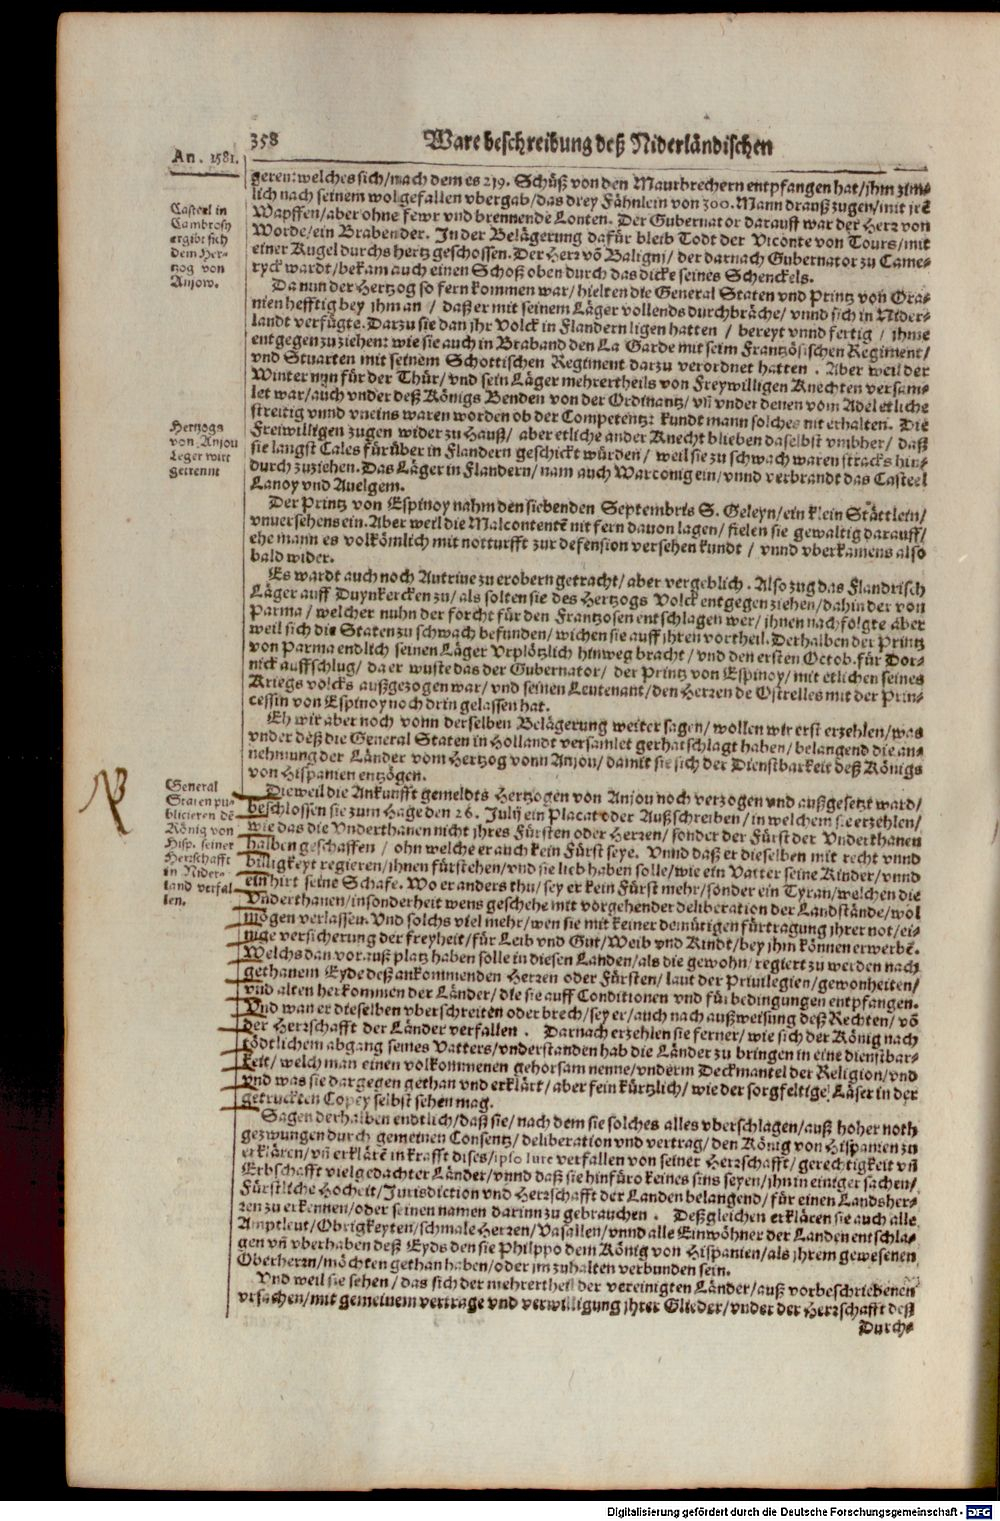 358 Ware beschreibung deß Niderländischen
An. 1581.
geren: welches sich/nach dem es 219. Schüß von den Maurbrechern entpfangen hat/jhm zim-
lich nach seinem wolgefallen vbergab/das drey Fähnlein von 300. Mann drauß zugen/mit jrē
Wapffen/aber ohne fewr vnd brennende Lonten. Der Gubernator darauff war der Herr von
Worde/ein Brabender. In der Belägerung dafür bleib Todt der Viconte von Tours/mit
einer Kugel durchs hertz geschossen. Der Herr võ Baligni/ der darnach Gubernator zu Came-
ryck wardt/bekam auch einen Schoß oben durch das dicke seines Schenckels.
Casteel in
Cambresy
ergibt sich
dem Her-
tzog von
Anjow.
Da nun der Hertzog so fern kommen war/hielten die General Staten vnd Printz von Ora-
nien hefftig bey jhm an / daß er mit seinem Läger vollends durchbräche/ vnnd sich in Nider-
landt verfügte. Darzu sie dan jhr Volck in Flandern ligen hatten / bereyt vnnd fertig / jhme
entgegen zu ziehen: wie sie auch in Braband den La Garde mit seim Frantzösischen Regiment/
vnd Stuarten mit seinem Schottischen Regiment darzu verordnet hatten . Aber weil der
Winter nun für der Thür/ vnd sein Läger mehrertheils von Freywilligen Knechten versam-
let war/auch vnder deß Königs Benden von der Ordinantz/ vñ vnder denen vom Adel etliche
streitig vnnd vneins waren worden ob der Competentz: kundt mann solches nit erhalten. Die
Freiwilligen zugen wider zu Hauß/ aber etliche ander Knecht blieben daselbst vmbher/ daß
sie langst Cales fürüber in Flandern geschickt würden/ weil sie zu schwach waren stracks hin-
durch zuziehen. Das Läger in Flandern/ nam auch Warconig ein/vnnd verbrandt das Casteel
Lanoy vnd Auelgem.
Hertzogs
von Anjou
Leger wirt
getrennt
Der Printz von Espinoy nahm den siebenden Septembris S. Geleyn/ein klein Stättlein/
vnuersehens ein. Aber weil die Malcontentē nit fern dauon lagen/ fielen sie gewaltig darauff/
ehe mann es volkömlich mit notturfft zur defension versehen kundt / vnnd vberkamens also
bald wider.
Es wardt auch noch Autriue zu erobern getracht/ aber vergeblich . Also zug das Flandrisch
Läger auff Duynkercken zu/als solten sie des Hertzogs Volck entgegen ziehen/dahin der von
Parma/ welcher nuhn der forcht für den Frantzosen entschlagen wer/ jhnen nachfolgte aber
weil sich die Staten zu schwach befunden/wichen sie auff jhren vortheil. Derhalben der Printz
von Parma endlich seinen Läger Vrplötzlich hinweg bracht/ vnd den ersten Octob. für Dor-
nick auffschlug/ da er wuste das der Gubernator/ der Printz von Espinoy/ mit etlichen seines
Kriegs volcks außgezogen war/ vnd seinen Leutenant/den Herren de Estrelles mit der Prin-
cessin von Espinoy noch drin gelassen hat.
Eh wir aber noch vonn derselben Belägerung weiter sagen/ wollen wir erst erzehlen/was
vnder deß die General Staten in Hollandt versamlet gerhatschlagt haben/ belangend die an-
nehmung der Länder vom Hertzog vonn Anjou/ damit sie sich der Dienstbarkeit deß Königs
von Hispanien entzögen.
General
Staten pu-
blicieren dē
König von
Hisp. seiner
Herrschafft
in Nider-
land verfal
len.
Dieweil die Ankunfft gemeldts Hertzogen von Anjou noch verzogen vnd außgesetzt ward/
beschlossen sie zum Hage den 26. Julij ein Placat oder Außschreiben / in welchem sie erzehlen/
wie das die Vnderthanen nicht jhres Fürsten oder Herren/ sonder der Fürst der Vnderthanen
halben geschaffen / ohn welche er auch kein Fürst seye. Vnnd daß er dieselben mit recht vnnd
billigkeyt regieren/ihnen fürstehen/vnd sie lieb haben solle/wie ein Vatter seine Kinder/vnnd
ein hirt seine Schafe. Wo er anders thu/ sey er kein Fürst mehr/sonder ein Tyran/welchen die
Vnderthanen/insonderheit wens geschehe mit vorgehender deliberation der Landstände/wol
mögen verlassen. Vnd solchs viel mehr/wen sie mit keiner demütigen fürtragung jhrer not/ei-
nige versicherung der freyheit/für Leib vnd Gut/Weib vnd Kindt/bey jhm können erwerbē.
Welchs dan vorauß platz haben solle in diesen Landen/als die gewohn/ regiert zu werden nach
gethanem Eyde deß ankommenden Herren oder Fürsten/ laut der Priuilegien/gewonheiten/
vnd alten herkommen der Länder/ die sie auff Conditionen vnd fürbedingungen entpfangen.
Vnd wan er dieselben vberschreiten oder brech/sey er/auch nach außweisung deß Rechten/ võ
der Herrschafft der Länder verfallen . Darnach erzehlen sie ferner/ wie sich der König nach
tödtlichem abgang seines Vatters/vnderstanden hab die Länder zu bringen in eine dienstbar-
keit/ welch man einen volkommenen gehorsam nenne/vnderm Deckmantel der Religion/vnd
vnd was sie dargegen gethan vnd erklärt/ aber fein kürtzlich/ wie der sorgfeltige Läser in der
getruckten Copey selbst sehen mag.
Sagen derhalben endtlich/daß sie/ nach dem sie solches alles vberschlagen/auß hoher noth
gezwungen durch gemeinen Consentz/ deliberation vnd vertrag/ den König von Hispanien zu
erklären/ vñ erklärē in krafft dises/ipso iure verfallen von seiner Herrschafft/ gerechtigkeit vñ
Erbschafft vielgedachter Länder/vnnd daß sie hinfüro keines sins seyen/jhn in einiger sachen/
Fürstliche Hocheit/Jurisdiction vnd Herrschafft der Landen belangend/ für einen Landsher-
ren zu erkennen/oder seinen namen darinn zu gebrauchen . Deßgleichen erklären sie auch alle
Amptleut/Obrigkeyten/schmale Herren/Vasallen/vnnd alle Einwöhner der Landen entschla-
gen vñ vberhaben deß Eyds den sie Philppo dem König von Hispanien/als jhrem gewesenen
Oberherrn/möchten gethan haben/oder jm zuhalten verbunden sein.
Vnd weil sie sehen/ das sich der mehrertheil der vereinigten Länder/auß vorbeschriebenen
vrsachen/mit gemeinem vertrage vnd verwilligung jhrer Glieder/vnder der Herrschafft deß
Durch-
Digitalisierung gefördert durch die Deutsche Forschungsgemeinschaft - DFG